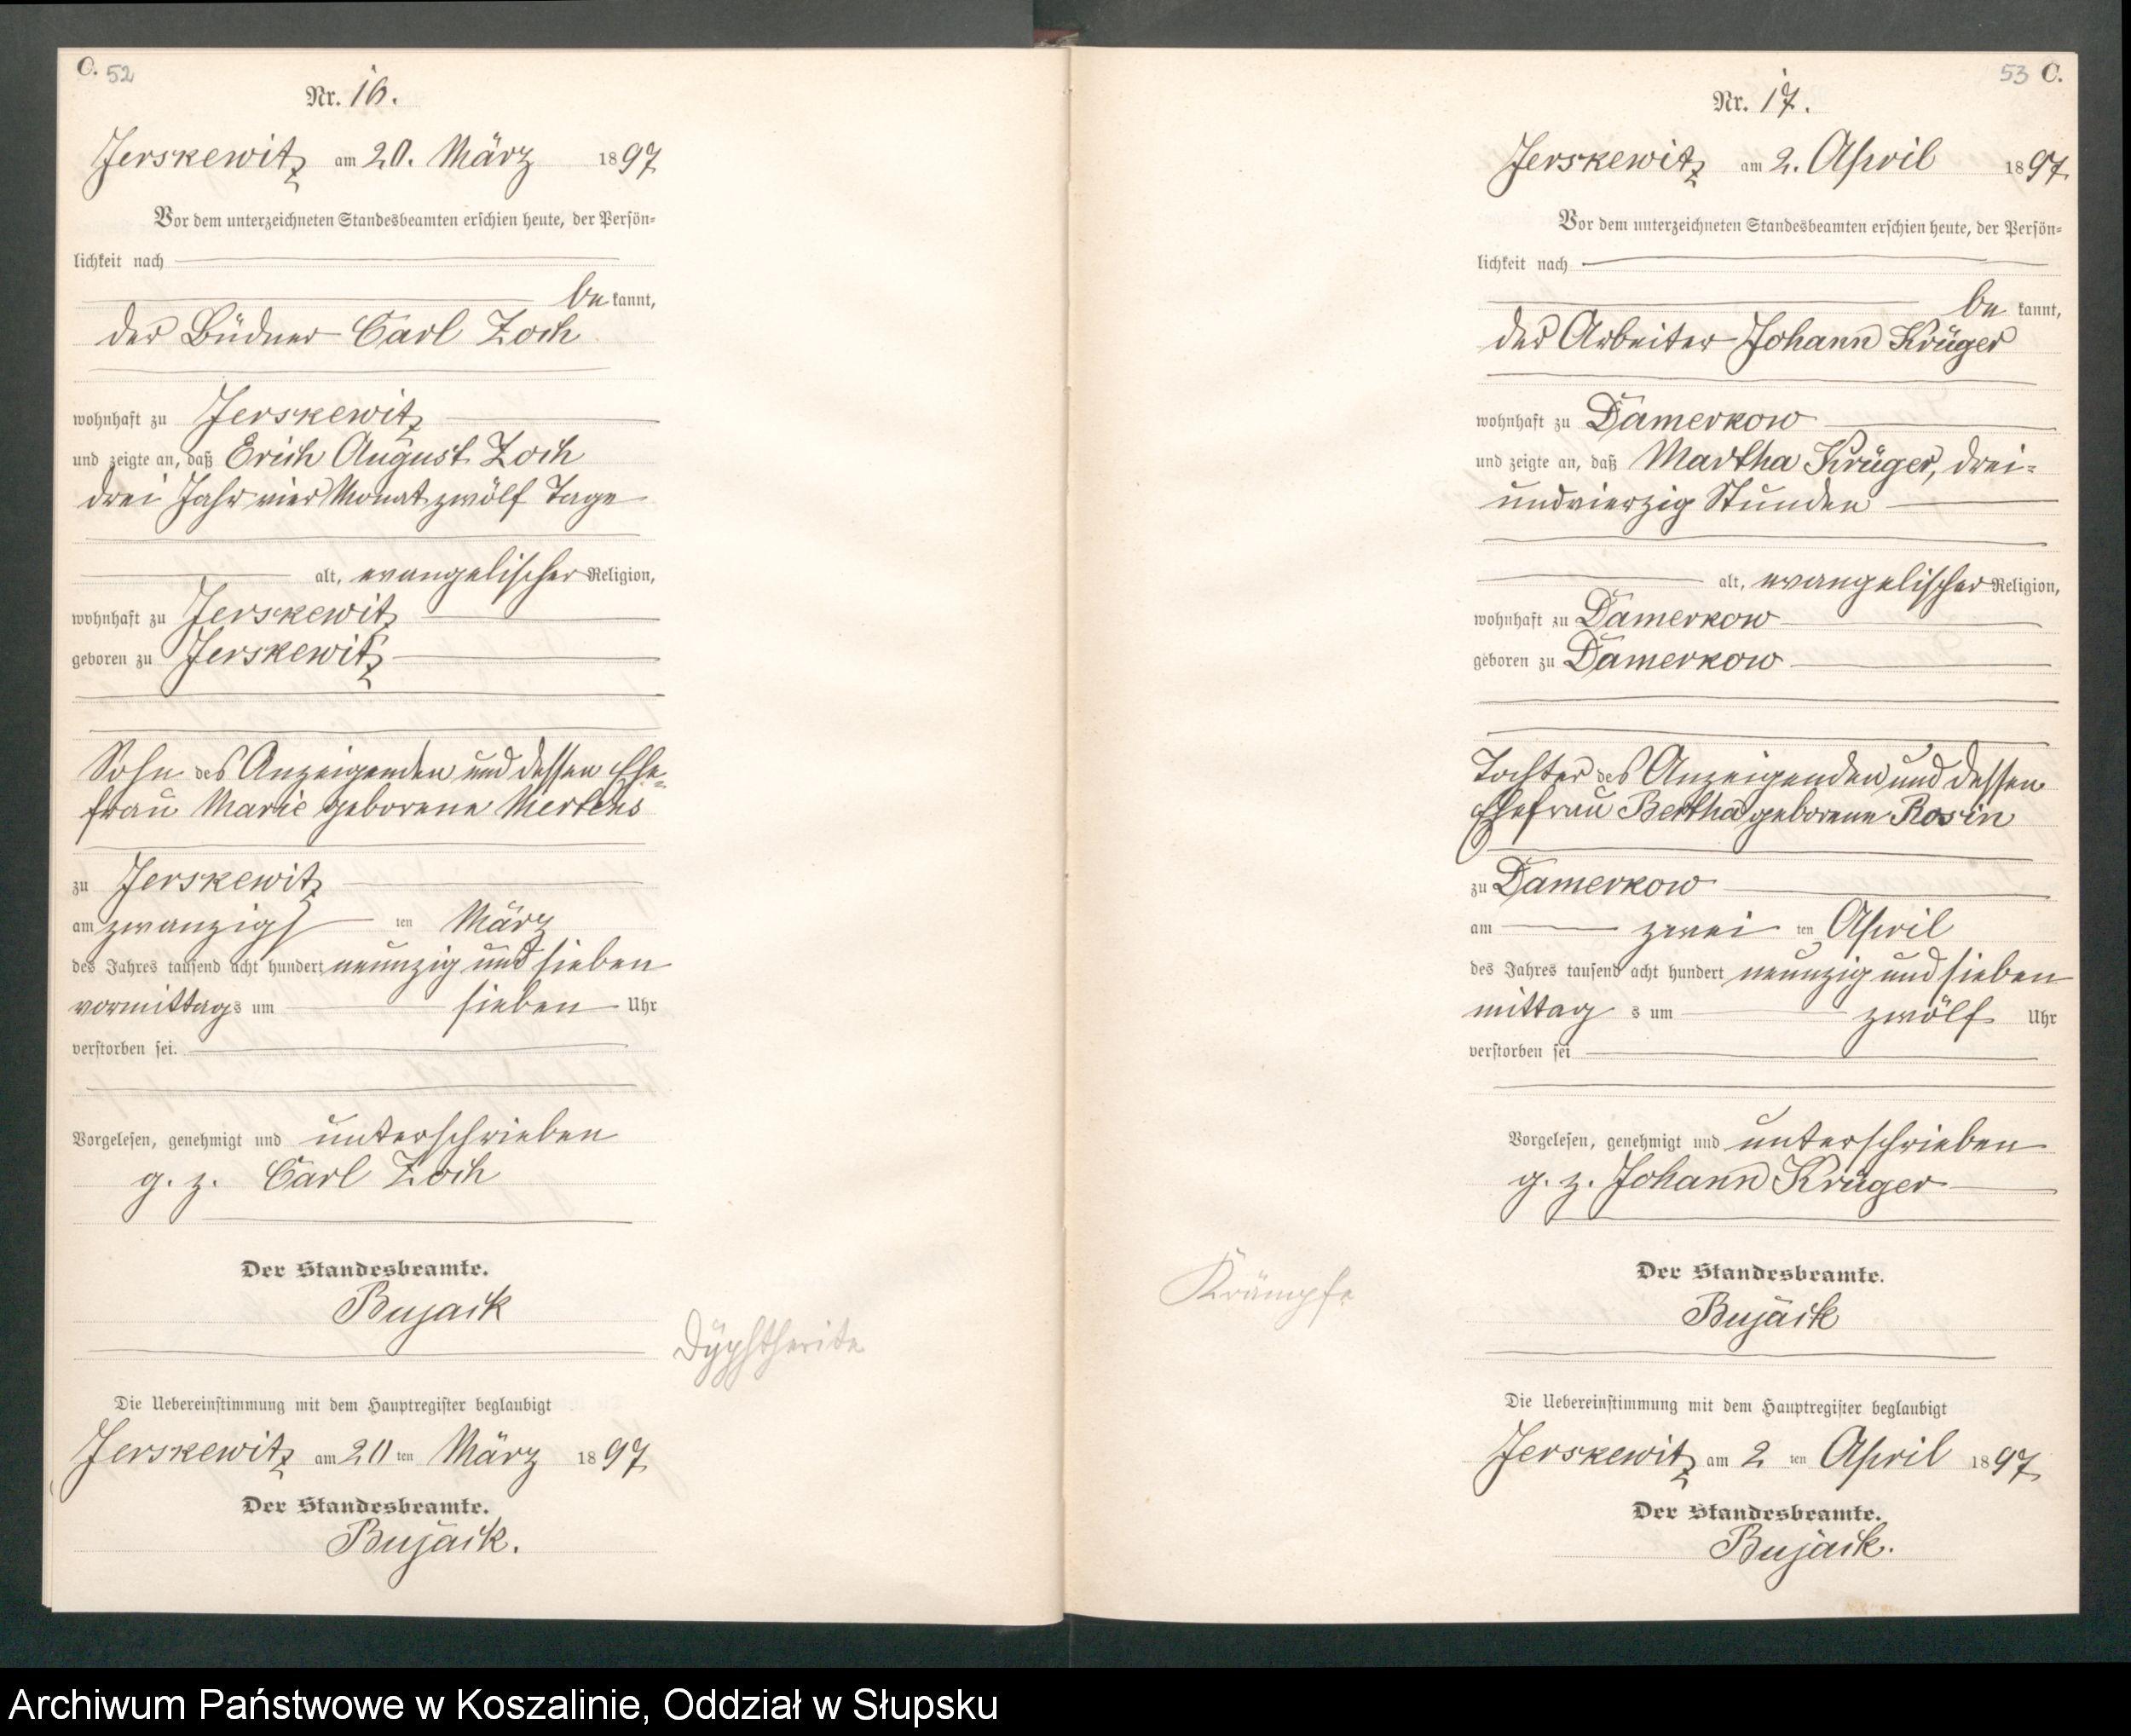 C. 52
Nr. 16.
Jerskewitz am 20. März 1897
Vor dem unterzeichneten Standesbeamten erschien heute, der Persön-
lichkeit nach
be kannt,
der Büdner Carl Zoch
wohnhaft zu Jerskewitz
und zeigte an, daß Erich August Zoch
drei Jahr vier Monat zwölf Tage
alt, evangelischer Religion,
wohnhaft zu Jerskewitz
geboren zu Jerskewitz
Sohn des Anzeigenden und dessen Ehe-
frau Marie geborene Mertens
zu Jerskewitz
am zwanzigs ten März
des Jahres tausend acht hundert neunzig und sieben
vormittags um sieben Uhr
verstorben sei.
Vorgelesen, genehmigt und unterschrieben
g. z. Carl Zoch
Der Standesbeamte.
Bujack
Dyphtherite
Die Uebereinstimmung mit dem Hauptregister beglaubigt
Jerskewitz am 20 ten März 1897
Der Standesbeamte.
Bujack.
53 C.
Nr. 17.
Jerskewitz am 2. April 1897
Vor dem unterzeichneten Standesbeamten erschien heute, der Persön-
lichkeit nach
be kannt,
der Arbeiter Johann Krüger
wohnhaft zu Damerkow
und zeigte an, daß Martha Krüger, drei-
undvierzig Stunden
alt, evangelischer Religion,
wohnhaft zu Damerkow
geboren zu Damerkow
Tochter des Anzeigenden und dessen
Ehefrau Bertha geborene Rosin
zu Damerkow
am zwei ten April
des Jahres tausend acht hundert neunzig und sieben
mittag s um zwölf Uhr
verstorben sei
Vorgelesen, genehmigt und unterschrieben
g. z. Johann Krüger
Krämpfe
Der Standesbeamte.
Bujack
Die Uebereinstimmung mit dem Hauptregister beglaubigt
Jerskewitz am 2 ten April 1897
Der Standesbeamte.
Bujack.
Archiwum Państwowe w Koszalinie, Oddział w Słupsku